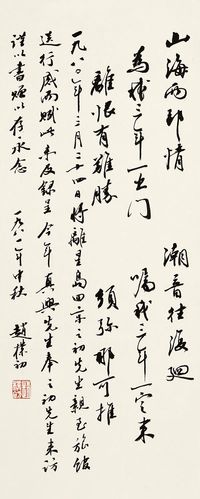 山海两邦情 潮音往復廻
三年一出門 嘱我三年一定来
離恨有難勝 須弥那可推
一九八〇年三月二十四日将離 島 之初先生親至旅館
送行感而賦此未及録呈今年真興先生奉之初先生来訪
謹以書贈以存永念 一九八一年中秋 趙樸初